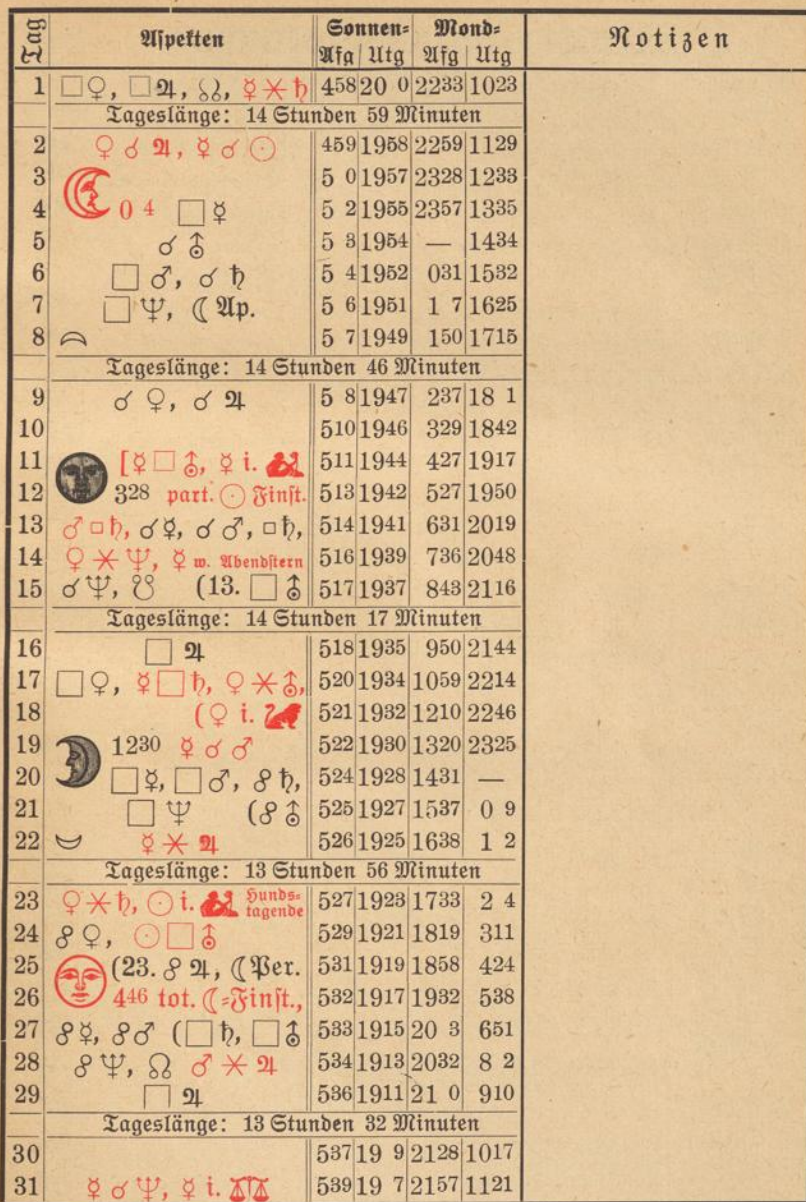 Tag Aspekten Sonnen= Mond= Notizen
Afg Utg Afg Utg
1 □♀, □♃, ☊, ☿⚹♄ 458 20 0 2233 1023
Tageslänge: 14 Stunden 59 Minuten
2 ♀☌♃, ☿☌☉ 459 1958 2259 1129
3 5 0 1957 2328 1233
4 ☾ 0 4 □☿ 5 2 1955 2357 1335
5 ☌⛢ 5 3 1954 — 1434
6 □♂, ☌♄ 5 4 1952 031 1532
7 □♆, ☾ Ap. 5 6 1951 1 7 1625
8 5 7 1949 150 1715
Tageslänge: 14 Stunden 46 Minuten
9 ☌♀, ☌♃ 5 8 1947 237 18 1
10 510 1946 329 1842
11 [☿□⛢, ☿ i. ♍ 511 1944 427 1917
12 328 part. ☉ Finst. 513 1942 527 1950
13 ♂□♄, ☌☿, ☌♂, □♄, 514 1941 631 2019
14 ♀⚹♆, ☿ w. Abendstern 516 1939 736 2048
15 ☌♆, ☋ (13. □⛢ 517 1937 843 2116
Tageslänge: 14 Stunden 17 Minuten
16 □♃ 518 1935 950 2144
17 □♀, ☿□♄, ♀⚹⛢, 520 1934 1059 2214
18 (♀ i. ♌ 521 1932 1210 2246
19 ☽ 1230 ☿☌♂ 522 1930 1320 2325
20 □☿, □♂, ☍♄, 524 1928 1431 —
21 □♆ (☍⛢ 525 1927 1537 0 9
22 ☿⚹♃ 526 1925 1638 1 2
Tageslänge: 13 Stunden 56 Minuten
23 ♀⚹♄, ☉ i. ♍ Hunds=tagende 527 1923 1733 2 4
24 ☍♀, ☉□⛢ 529 1921 1819 311
25 (23. ☍♃, ☾ Per. 531 1919 1858 424
26 446 tot. ☾=Finst., 532 1917 1932 538
27 ☍☿, ☍♂ (□♄, □⛢ 533 1915 20 3 651
28 ☍♆, ☊ ♂⚹♃ 534 1913 2032 8 2
29 □♃ 536 1911 21 0 910
Tageslänge: 13 Stunden 32 Minuten
30 537 19 9 2128 1017
31 ☿☌♆, ☿ i. ♎ 539 19 7 2157 1121